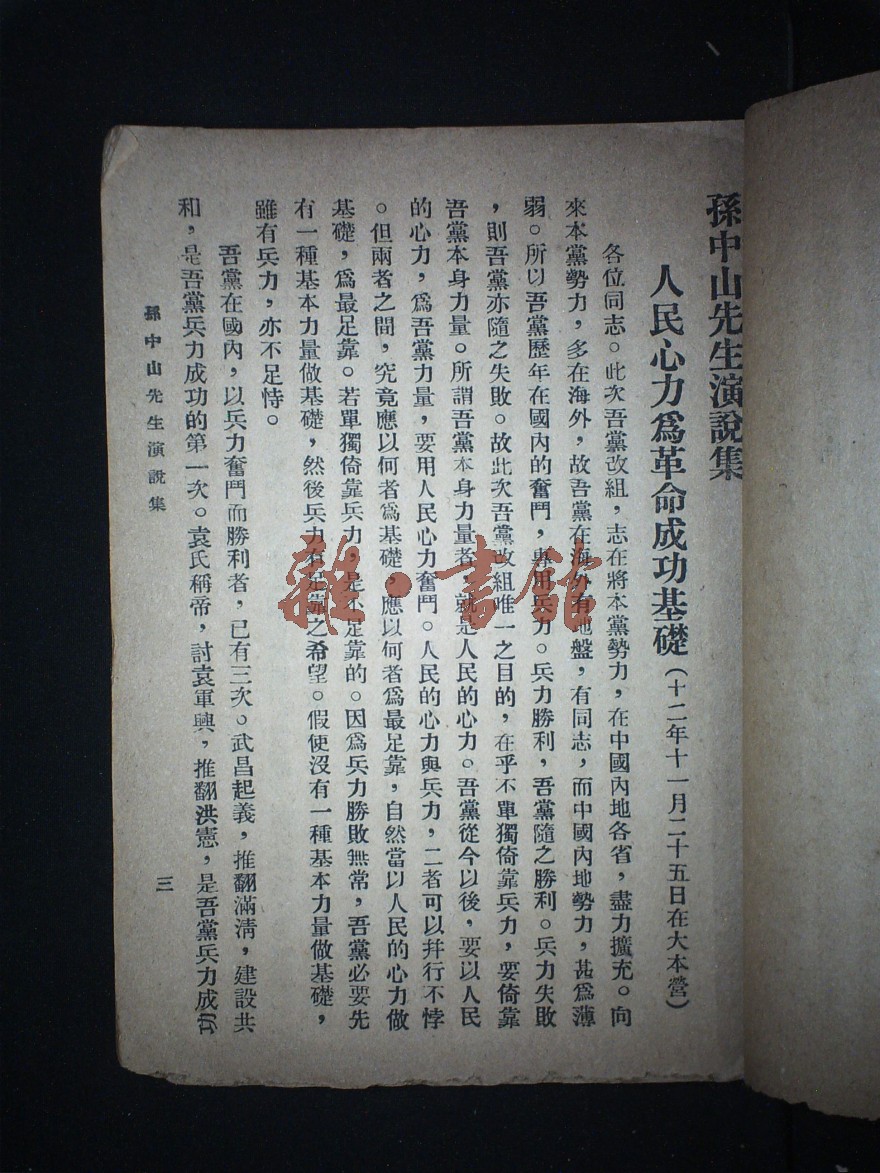 孫中山先生演說集
人民心力爲革命成功基礎（十二年十一月二十五日在大本營）
各位同志。此次吾黨改組，志在將本黨勢力，在中國內地各省，盡力擴充。向
來本黨勢力，多在海外，故吾黨在海外有地盤，有同志，而中國內地勢力，甚爲薄
弱。所以吾黨歷年在國內的奮鬥，專用兵力。兵力勝利，吾黨隨之勝利。兵力失敗
，則吾黨亦隨之失敗。故此次吾黨改組唯一之目的，在乎不單獨倚靠兵力，要倚靠
吾黨本身力量。所謂吾黨本身力量者，就是人民的心力。吾黨從今以後，要以人民
的心力，爲吾黨力量，要用人民心力奮鬥。人民的心力與兵力，二者可以幷行不悖
。但兩者之間，究竟應以何者爲基礎，應以何者爲最足靠，自然當以人民的心力做
基礎，爲最足靠。若單獨倚靠兵力，是不足靠的。因爲兵力勝敗無常，吾黨必要先
有一種基本力量做基礎，然後兵力有足靠之希望。假使沒有一種基本力量做基礎，
雖有兵力，亦不足恃。
吾黨在國內，以兵力奮鬥而勝利者，已有三次。武昌起義，推翻滿淸，建設共
和，是吾黨兵力成功的第一次。袁氏稱帝，討袁軍興，推翻洪憲，是吾黨兵力成功
孫中山先生演說集
三
雜·書館